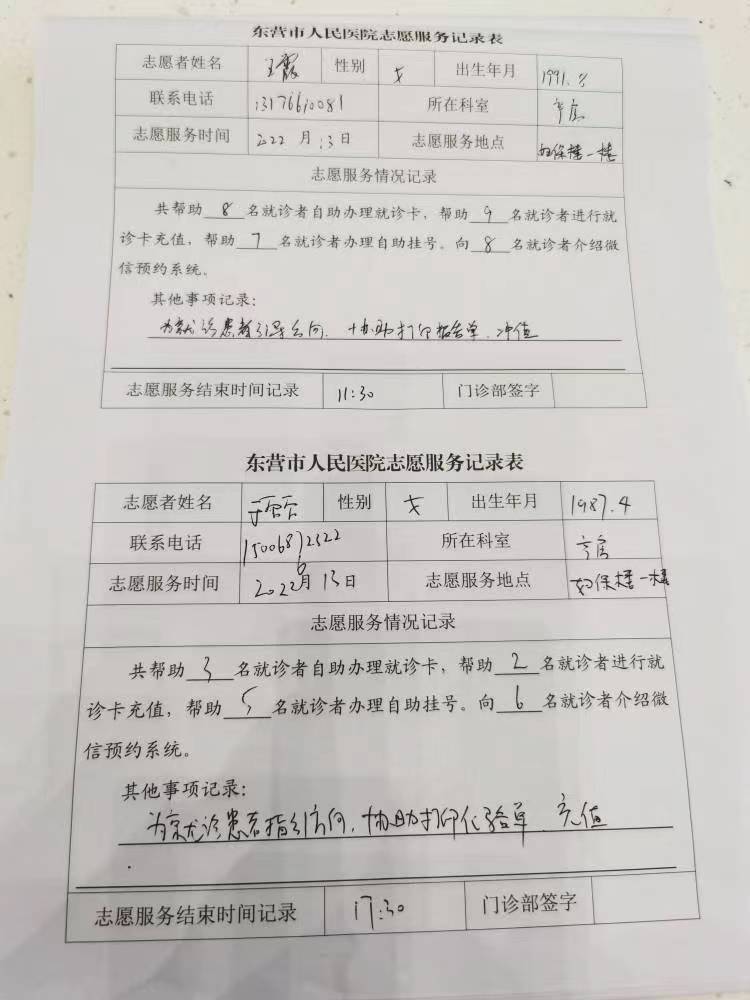 东营市人民医院志愿服务记录表
志愿者姓名 王霞 性别 女 出生年月 1991.
联系电话 13176610081 所在科室
志愿服务时间 2022 月 13 日 志愿服务地点 妇保楼一楼
志愿服务情况记录
共帮助 8 名就诊者自助办理就诊卡，帮助 9 名就诊者进行就
诊卡充值，帮助 7 名就诊者办理自助挂号。向 8 名就诊者介绍微
信预约系统。
其他事项记录：
为就诊患者引导方向、协助打印报告单、冲值
志愿服务结束时间记录 11:30 门诊部签字
东营市人民医院志愿服务记录表
志愿者姓名 性别 女 出生年月 1987.4
联系电话 15006872522 所在科室
志愿服务时间 2022 6月 13 日 志愿服务地点 妇保楼一楼
志愿服务情况记录
共帮助 3 名就诊者自助办理就诊卡，帮助 2 名就诊者进行就
诊卡充值，帮助 5 名就诊者办理自助挂号。向 6 名就诊者介绍微
信预约系统。
其他事项记录：
为就诊患者指引方向、协助打印化验单、充值
志愿服务结束时间记录 17:30 门诊部签字